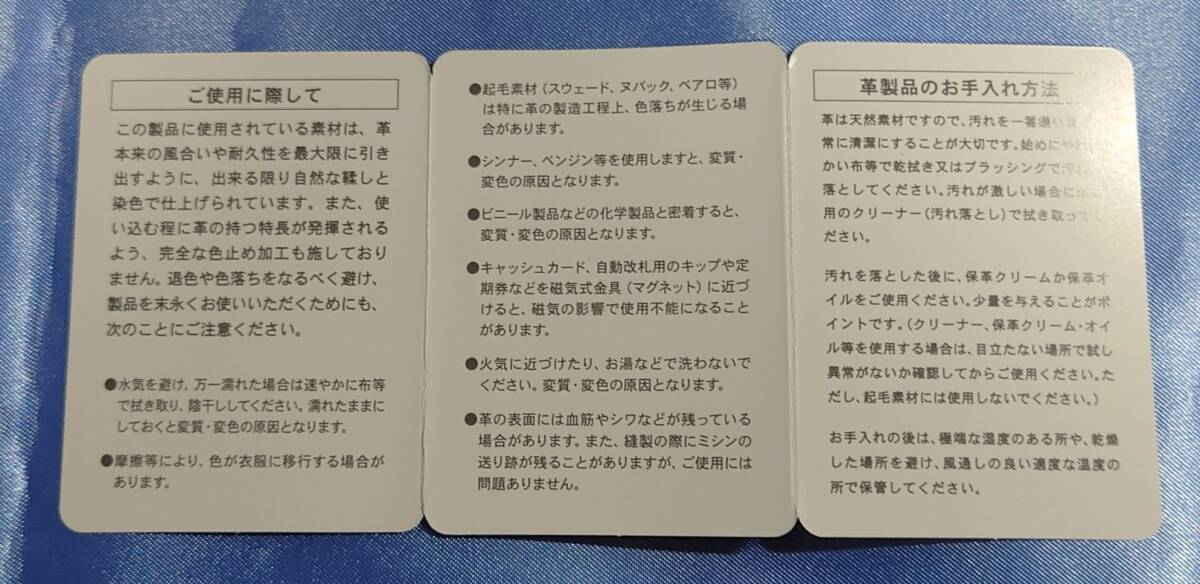 ご使用に際して
この製品に使用されている素材は、革
本来の風合いや耐久性を最大限に引き
出すように、出来る限り自然な鞣しと
染色で仕上げられています。また、使
い込む程に革の持つ特長が発揮される
よう、完全な色止め加工も施しており
ません。退色や色落ちをなるべく避け、
製品を末永くお使いいただくためにも、
次のことにご注意ください。
●水気を避け、万一濡れた場合は速やかに布等
で拭き取り、陰干ししてください。濡れたままに
しておくと変質・変色の原因となります。
●摩擦等により、色が衣服に移行する場合が
あります。
●起毛素材（スウェード、ヌバック、ベアロ等）
は特に革の製造工程上、色落ちが生じる場
合があります。
●シンナー、ベンジン等を使用しますと、変質・
変色の原因となります。
●ビニール製品などの化学製品と密着すると、
変質・変色の原因となります。
●キャッシュカード、自動改札用のキップや定
期券などを磁気式金具（マグネット）に近づ
けると、磁気の影響で使用不能になること
があります。
●火気に近づけたり、お湯などで洗わないで
ください。変質・変色の原因となります。
●革の表面には血筋やシワなどが残っている
場合があります。また、縫製の際にミシンの
送り跡が残ることがありますが、ご使用には
問題ありません。
革製品のお手入れ方法
革は天然素材ですので、汚れを一番嫌い
常に清潔にすることが大切です。始めにや
かい布等で乾拭き又はブラッシングで
落としてください。汚れが激しい場合に
用のクリーナー（汚れ落とし）で拭き取って
ださい。
汚れを落とした後に、保革クリームか保革オ
イルをご使用ください。少量を与えることがポ
イントです。（クリーナー、保革クリーム・オイ
ル等を使用する場合は、目立たない場所で試し
異常がないか確認してからご使用ください。た
だし、起毛素材には使用しないでください。）
お手入れの後は、極端な湿度のある所や、乾燥
した場所を避け、風通しの良い適度な温度の
所で保管してください。